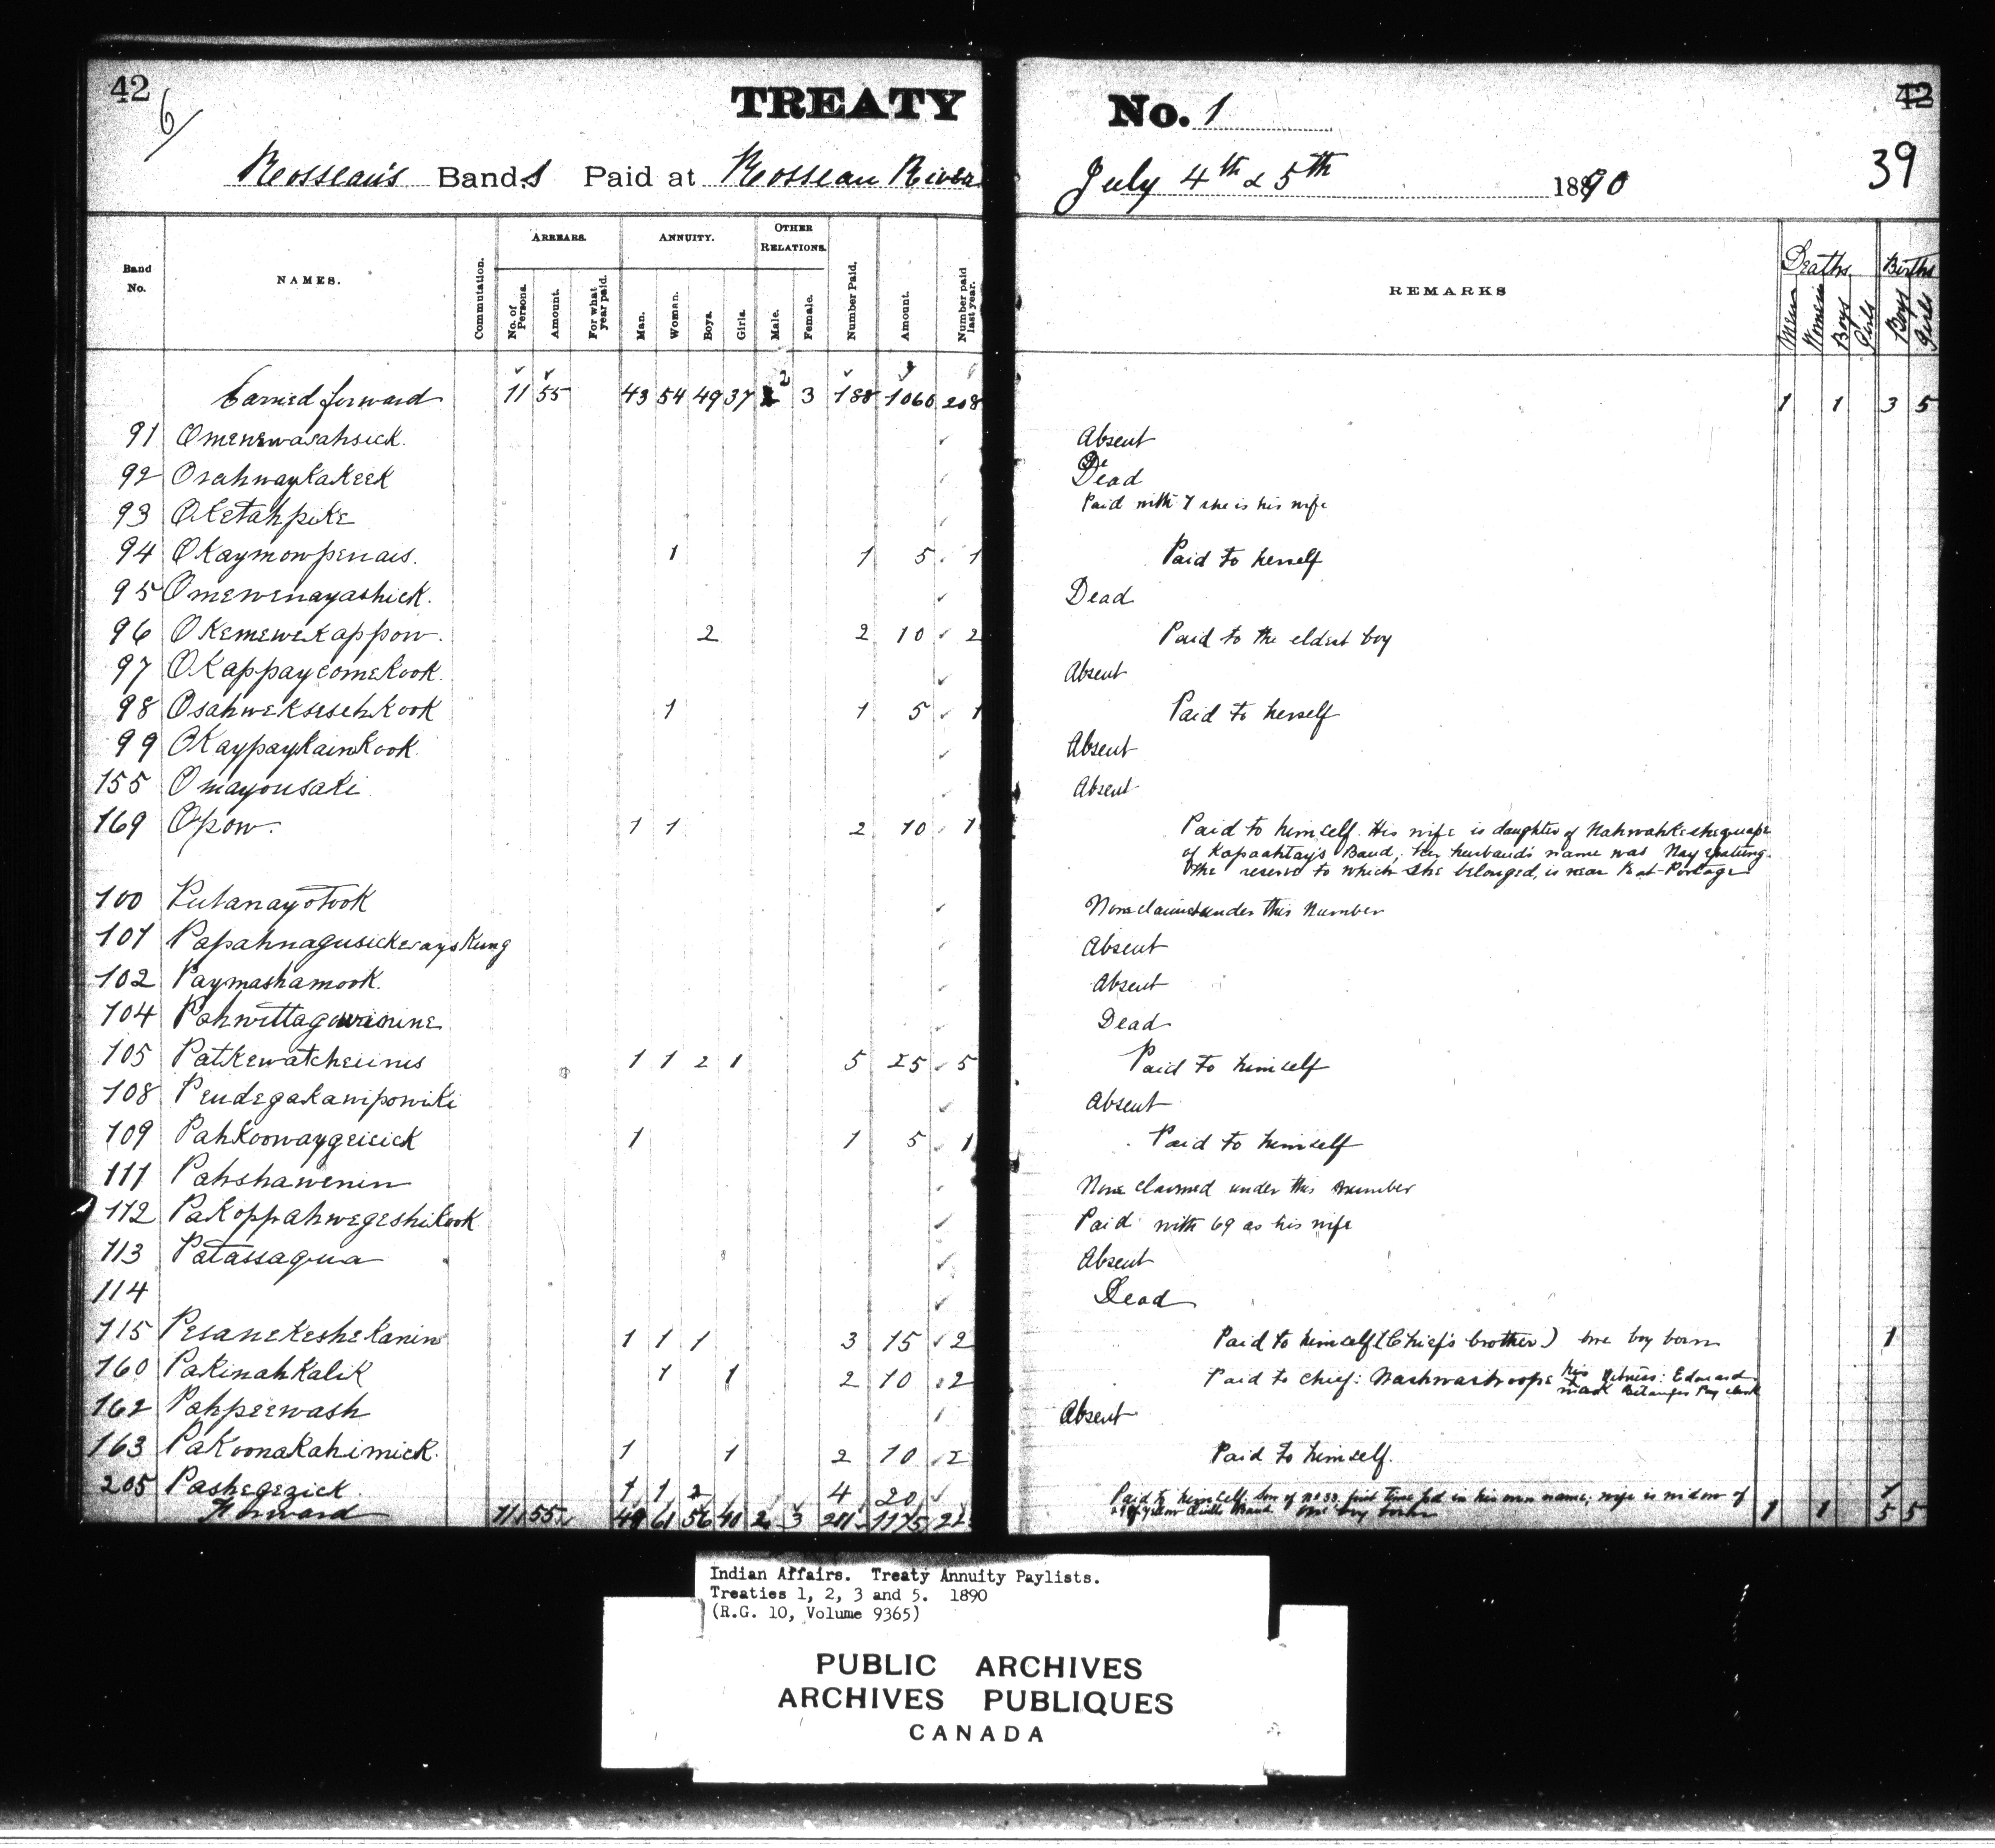 42
6/
TREATY No. 1
42
39
Rosseau's Bands Paid at Rosseau River July 4th & 5th 1890
Band No. NAMES. Commutation. ARREARS. No. of Persons. Amount. For what year paid. ANNUITY. Man. Woman. Boys. Girls. OTHER RELATIONS. Male. Female. Number Paid. Amount. Number paid last year. REMARKS Deaths Men Women Boys Girls Births Boys Girls
Carried forward 11 55 43 54 49 37 2 3 188 1060 208 1 1 3 5
91 Omenewasahsick. Absent
92 Osahwaykakeek Dead
93 Oketahpeke Paid with 7 she is his wife
94 Okaymowpenais. 1 1 5 1 Paid to herself
95 Omewenayashick. Dead
96 Okemewekappow. 2 2 10 2 Paid to the eldest boy
97 Okappaycomekook. Absent
98 Osahweksesehkook 1 1 5 1 Paid to herself
99 Okaypaykainkook. Absent
155 Omayousaki Absent
169 Opow. 1 1 2 10 1 Paid to himself. His wife is daughter of Nahwahkeshequape
of Kapaahtay's Band, her husband's name was
The reserve to which she belonged, is near Rat-Portage
100 Putanayotook None claimed under this Number
101 Papahnagusickewayskung Absent
102 Paymashamook. Absent
104 Dead
105 Patkewatcheinis 1 1 2 1 5 25 5 Paid to himself
108 Pendegakawipowiki Absent
109 Pahkoowaygeisick 1 1 5 1 Paid to himself
111 Pahshawenin None claimed under this number
112 Pakoppahwegeshikook Paid with 69 as his wife
113 Patassagua Absent
114 Dead
115 Pesanekeshekanin 1 1 1 3 15 2 Paid to himself (Chief's brother) one boy born 1
160 Pakinahkalik 1 1 2 10 2 Paid to chief: Nashwashoope his mark Witness: Edouard Belanger Pay clerk
162 Pahpeewash Absent
163 Pakoonakahimick. 1 1 2 10 2 Paid to himself.
205 Pashegezick. 1 1 2 4 20 Paid to himself. Son of No 33 first time paid in his own name; wife is widow of 1
Forward 11 55 49 61 56 40 2 3 211 1175 Band One boy born 1 1 5 5
Indian Affairs. Treaty Annuity Paylists.
Treaties 1, 2, 3 and 5. 1890
(R.G. 10, Volume 9365)
PUBLIC ARCHIVES
ARCHIVES PUBLIQUES
CANADA